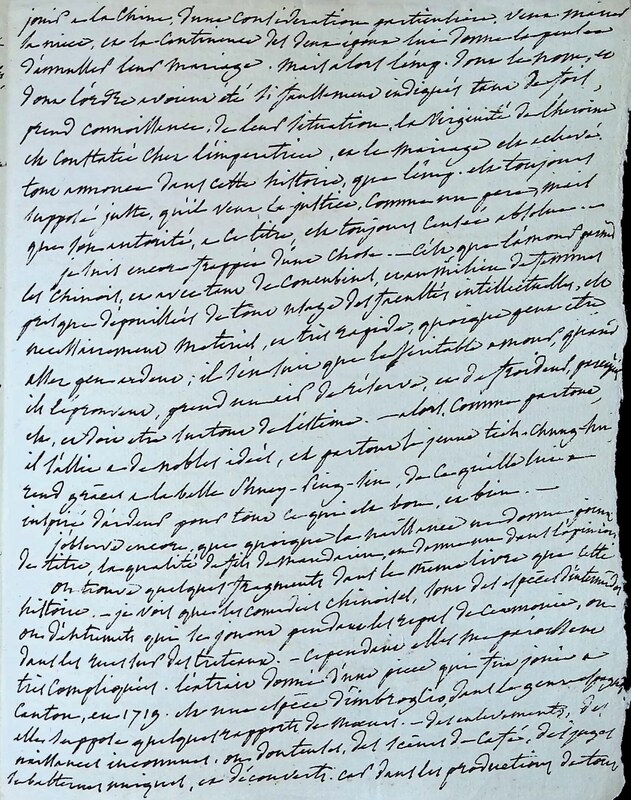 jouis a la Chine, d'une Considération particuliere, veut marier
la niece, et la Continence des deux époux lui donne la pensée
d'annuller leur mariage. mais alors l'emp. dont le nom, et
dont l'ordre avoient été si faussement indiqués tant de fois,
prend connoissance, de leur situation, la Virginité de l'heroïne
est Constatée chez l'imperatrice, et le mariage est achevé.
tout annonce dans cette histoire, que l'emp. est toujours
supposé juste, qu'il veut la justice, Comme un pere, mais
que son autorité, a ce titre, est toujours censée absolue. —
je suis encore frappée d'une chose. — C'est que l'amour parmi
les Chinois, et avec tant de Concubines, et au milieu de femmes
presque dépouillées de tout usage des facultés intellectuelles, est
necessairement materiel, et très rapide, quoique peut etre
assez peu ardent; il s'ensuit que le véritable amour, quand
ils l'éprouvent, prend un air de réserve, et de froideur, parcequ'il
est, et doit etre surtout de l'estime. — alors, Comme partout,
il s'allie a de nobles idées, et partout le jeune tieh-chung-hu
rend graces a la belle Shuey-Ping-Sin, de ce qu'elle lui a
inspiré d'ardeur pour tout ce qui est bon, et bien. —
j'observe encore, que quoique la naissance ne donne point
de titre, la qualité de fils de mandarin, en donne un dans l'opinion
on trouve quelques fragments dans le meme livre que cette
histoire. — je vois que les comedies Chinoises, sont des especes d'intermedes
ou d'intermets que se jouent pendant les repas de Ceremonie, ou
dans les rues sur des treteaux. — Cependant elles me paroissent
très Compliquées. l'extrait donné d'une piece que fut jouée a
Canton, en 1719. est une espèce d'imbroglio, dans le genre espagnol,
elle suppose quelques rapports de moeurs. — des enlevements, des
naissances inconnues, ou douteuses, des scènes de Café, des juges
subalternes iniques, et découverts. car dans les productions de tous